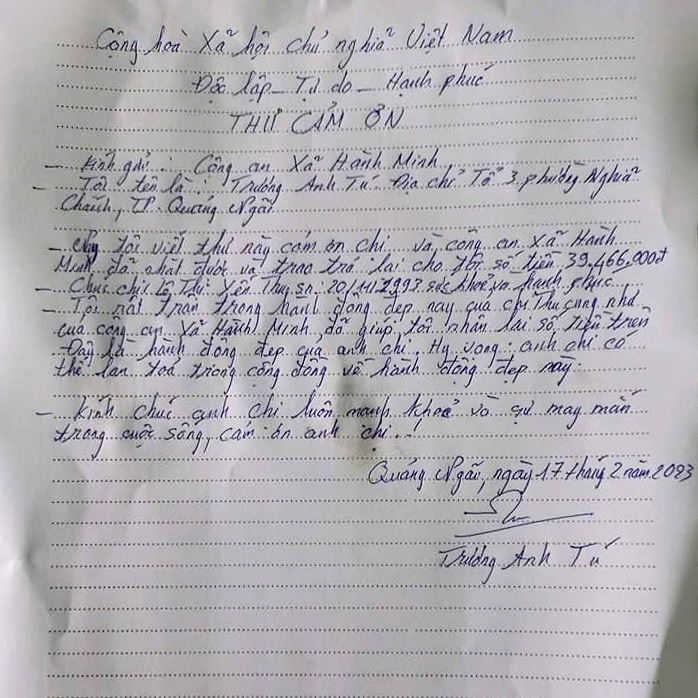 Cộng hoà Xã hội chủ nghĩa Việt Nam
Độc lập - Tự do - Hạnh phúc
THƯ CẢM ƠN
- Kính gửi: Công an Xã Hành Minh
- Tôi tên là: Trương Anh Tú. Địa chỉ Tổ 3, phường Nghĩa
Chánh, TP Quảng Ngãi
- Nay tôi viết thư này cảm ơn chị và công an Xã Hành
Minh, đã nhặt được và trao trả lại cho tôi số tiền 39,466,000đ
- Chúc chị Thị Yến Thu sn: 20/11/1997. sức khoẻ và hạnh phúc
- Tôi rất trân trong hành động đẹp này của chị Thu cũng như
của công an Xã Hành Minh đã giúp tôi nhận lại số tiền trên
Đây là hành động đẹp của anh chị. Hy vọng: anh chị có
thể lan toả trong cộng đồng về hành động đẹp này.
- Kính chúc anh chị luôn mạnh khoẻ và sự may mắn
trong cuộc sống, cảm ơn anh chị.!
Quảng Ngãi, ngày 17 tháng 2 năm 2023
Trương Anh Tú